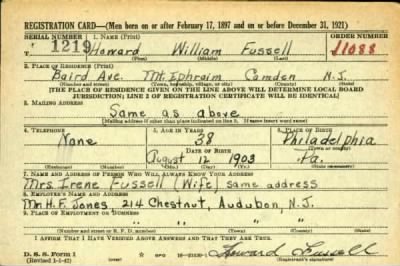 REGISTRATION CARD—(Men born on or after February 17, 1897 and on or before December 31, 1921)
SERIAL NUMBER 1. NAME (Print) ORDER NUMBER
T 1219 Howard William Fussell 11088
(First) (Middle) (Last)
2. PLACE OF RESIDENCE (Print)
Baird Ave. Mt. Ephraim Camden N.J.
(Number and street) (Town, township, village, or city) (County) (State)
[THE PLACE OF RESIDENCE GIVEN ON THE LINE ABOVE WILL DETERMINE LOCAL BOARD
JURISDICTION; LINE 2 OF REGISTRATION CERTIFICATE WILL BE IDENTICAL]
3. MAILING ADDRESS
Same as above
[Mailing address if other than place indicated on line 2. If same insert word same]
4. TELEPHONE 5. AGE IN YEARS 6. PLACE OF BIRTH
None 38 Philadelphia
DATE OF BIRTH
August 12 1903 Pa.
7. NAME AND ADDRESS OF PERSON WHO WILL ALWAYS KNOW YOUR ADDRESS
Mrs. Irene Fussell (Wife) same address
8. EMPLOYER'S NAME AND ADDRESS
Mr. H. F. Jones, 214 Chestnut, Audubon, N.J.
9. PLACE OF EMPLOYMENT OR BUSINESS
(Number and street or R. F. D. number) (Town) (County) (State)
I AFFIRM THAT I HAVE VERIFIED ABOVE ANSWERS AND THAT THEY ARE TRUE.
D. S. S. Form 1
(Revised 1-1-42) GPO Howard Fussell